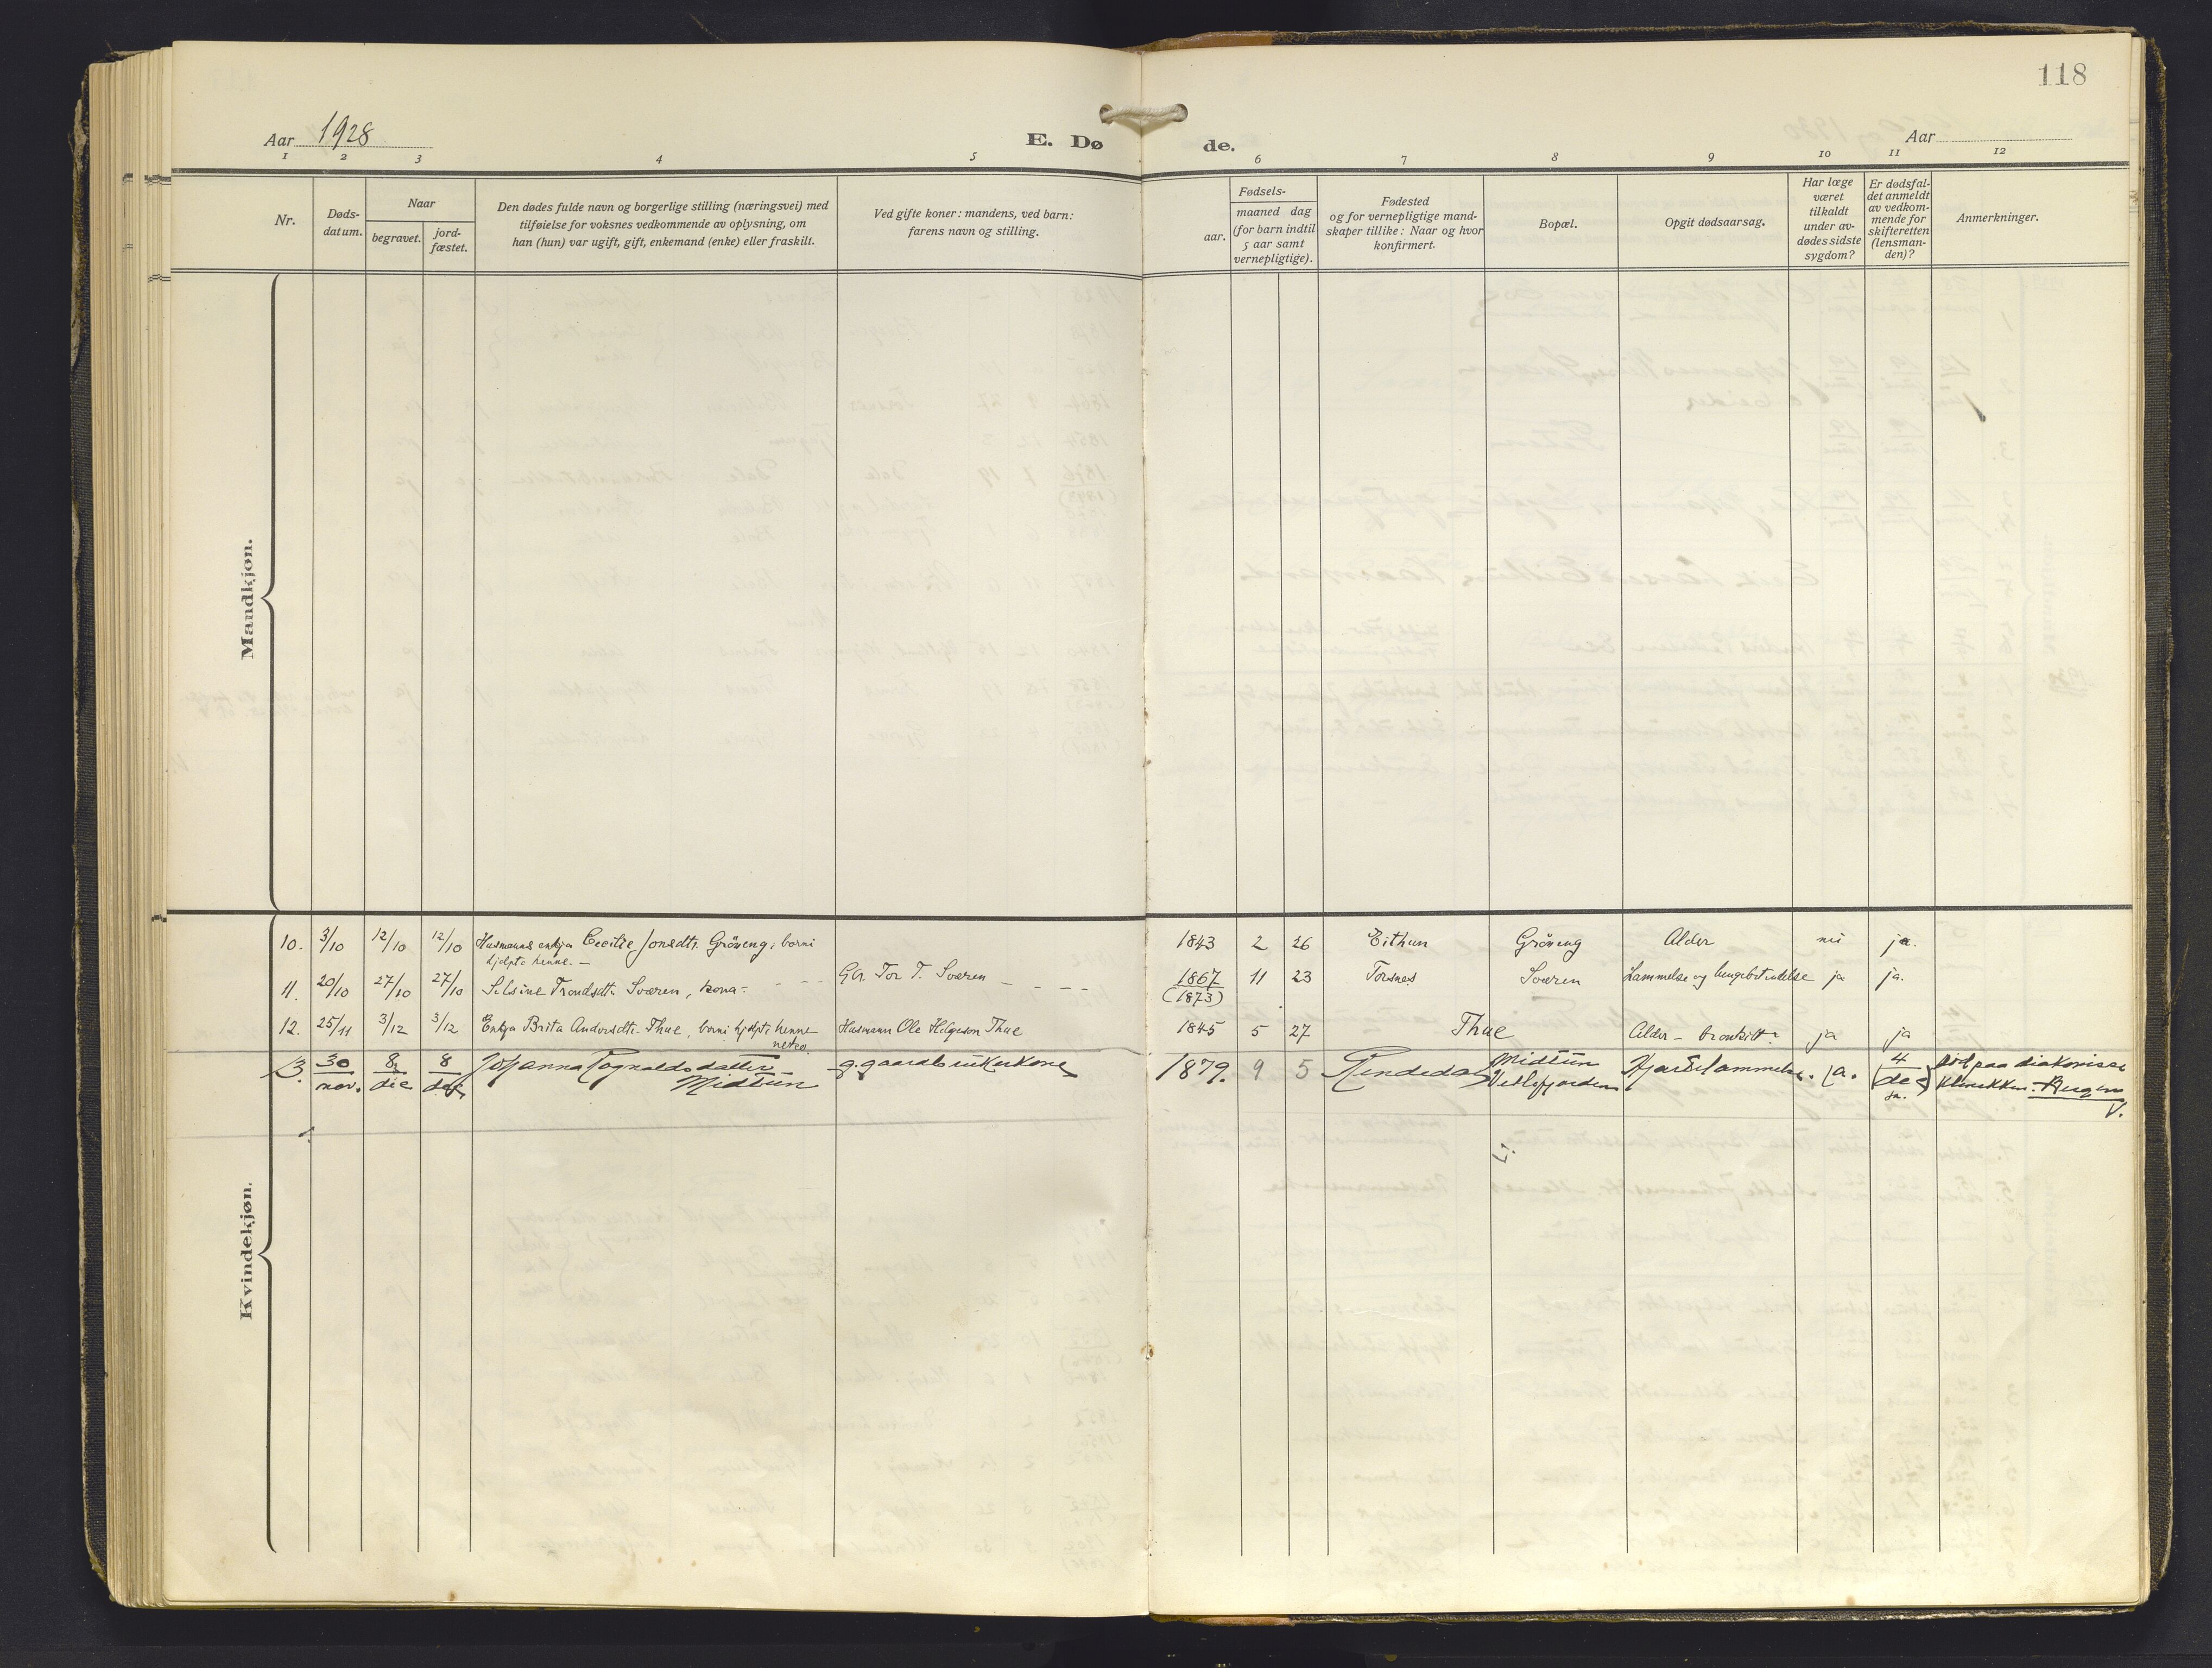 118
Aar 1928
E. Dø
de.
Aar
1 2 3 4 5 6 7 8 9 10 11 12
Nr.
Døds-
datum.
Naar
begravet.
jord-
fæstet.
Den dødes fulde navn og borgerlige stilling (næringsvei) med
tilføielse for voksnes vedkommende av oplysning, om
han (hun) var ugift, gift, enkemand (enke) eller fraskilt.
Ved gifte koner: mandens, ved barn:
farens navn og stilling.
Fødsels-
aar.
maaned dag
(for barn indtil
5 aar samt
vernepligtige).
Fødested
og for vernepligtige mand-
skaper tillike: Naar og hvor
konfirmert.
Bopæl.
Opgit dødsaarsag.
Har læge
været
tilkaldt
under av-
dødes sidste
sygdom?
Er dødsfal-
det anmeldt
av vedkom-
mende for
skifteretten
(lensman-
den)?
Anmerkninger.
Mandkjøn.
10. 3/10 12/10 12/10 Husmanns enkja Cecilie Jonsdtr. Gröneng, borni 1843 2 26 Eithun Gröneng Alder nei ja.
hjelpte henne. —
11. 20/10 27/10 27/10 Silsine Trondsdtr. Sværen, kona - Gbr. Tor T. Sværen 1867 11 23 Torsnes Sværen Lammelse og lungebetendelse ja ja.
(1873)
12. 25/11 3/12 3/12 Enkja Brita Andersdtr. Thue, borni hjelpte henne Husmann Ole Helgeson Thue 1845 5 27 Thue Alder - bronkitt ja ja
13. 30 8 8 Johanna Rognaldsdatter g. gaardbrukerkone 1879. 9 5 Rendedal Midtun Hjertelammelse. ja. 4 död paa diakonisse
nov. dec des Midtun Vetlefjorden des klinikken. Bergen
ja. V.
Kvindekjøn.